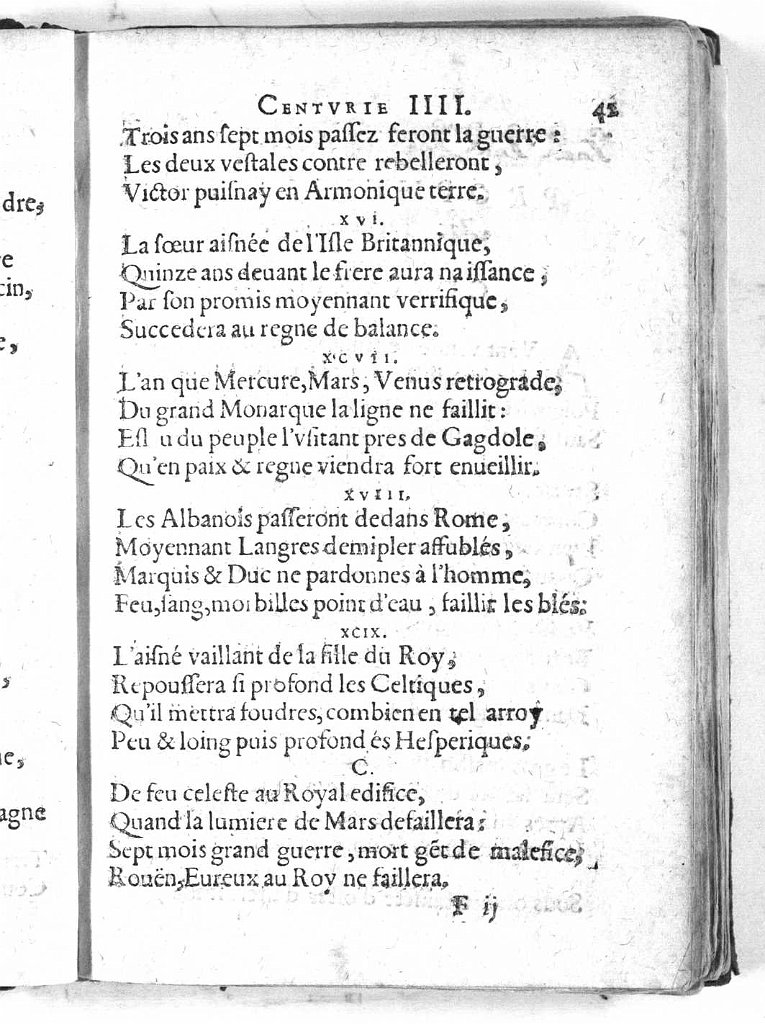 dre,
re
cin,
e,
,
ne,
agne
CENTVRIE IIII. 42
Trois ans ſept mois paſſez feront la guerre :
Les deux veſtales contre rebelleront,
Victor puiſnay en Armonique terre.
xvi.
La ſœur aiſnée de l'Iſle Britannique,
Quinze ans deuant le frere aura naiſſance,
Par ſon promis moyennant verrifique,
Succedera au regne de balance.
xcvii.
L'an que Mercure, Mars, Venus retrograde,
Du grand Monarque la ligne ne faillit:
Eſl u du peuple l'vſitant pres de Gagdole,
Qu'en paix & regne viendra fort enueillir.
xviii.
Les Albanois paſſeront dedans Rome,
Moyennant Langres demipler affublés,
Marquis & Duc ne pardonnes à l'homme,
Feu, ſang, mor billes point d'eau, faillir les blés:
xcix.
L'aiſné vaillant de la fille du Roy,
Repouſſera ſi profond les Celtiques,
Qu'il mettra foudres, combien en tel arroy
Peu & loing puis profond és Heſperiques.
C.
De feu celeſte au Royal edifice,
Quand la lumiere de Mars defaillera:
Sept mois grand guerre, mort gēt de malefice,
Rouën, Eureux au Roy ne faillera.
F ij